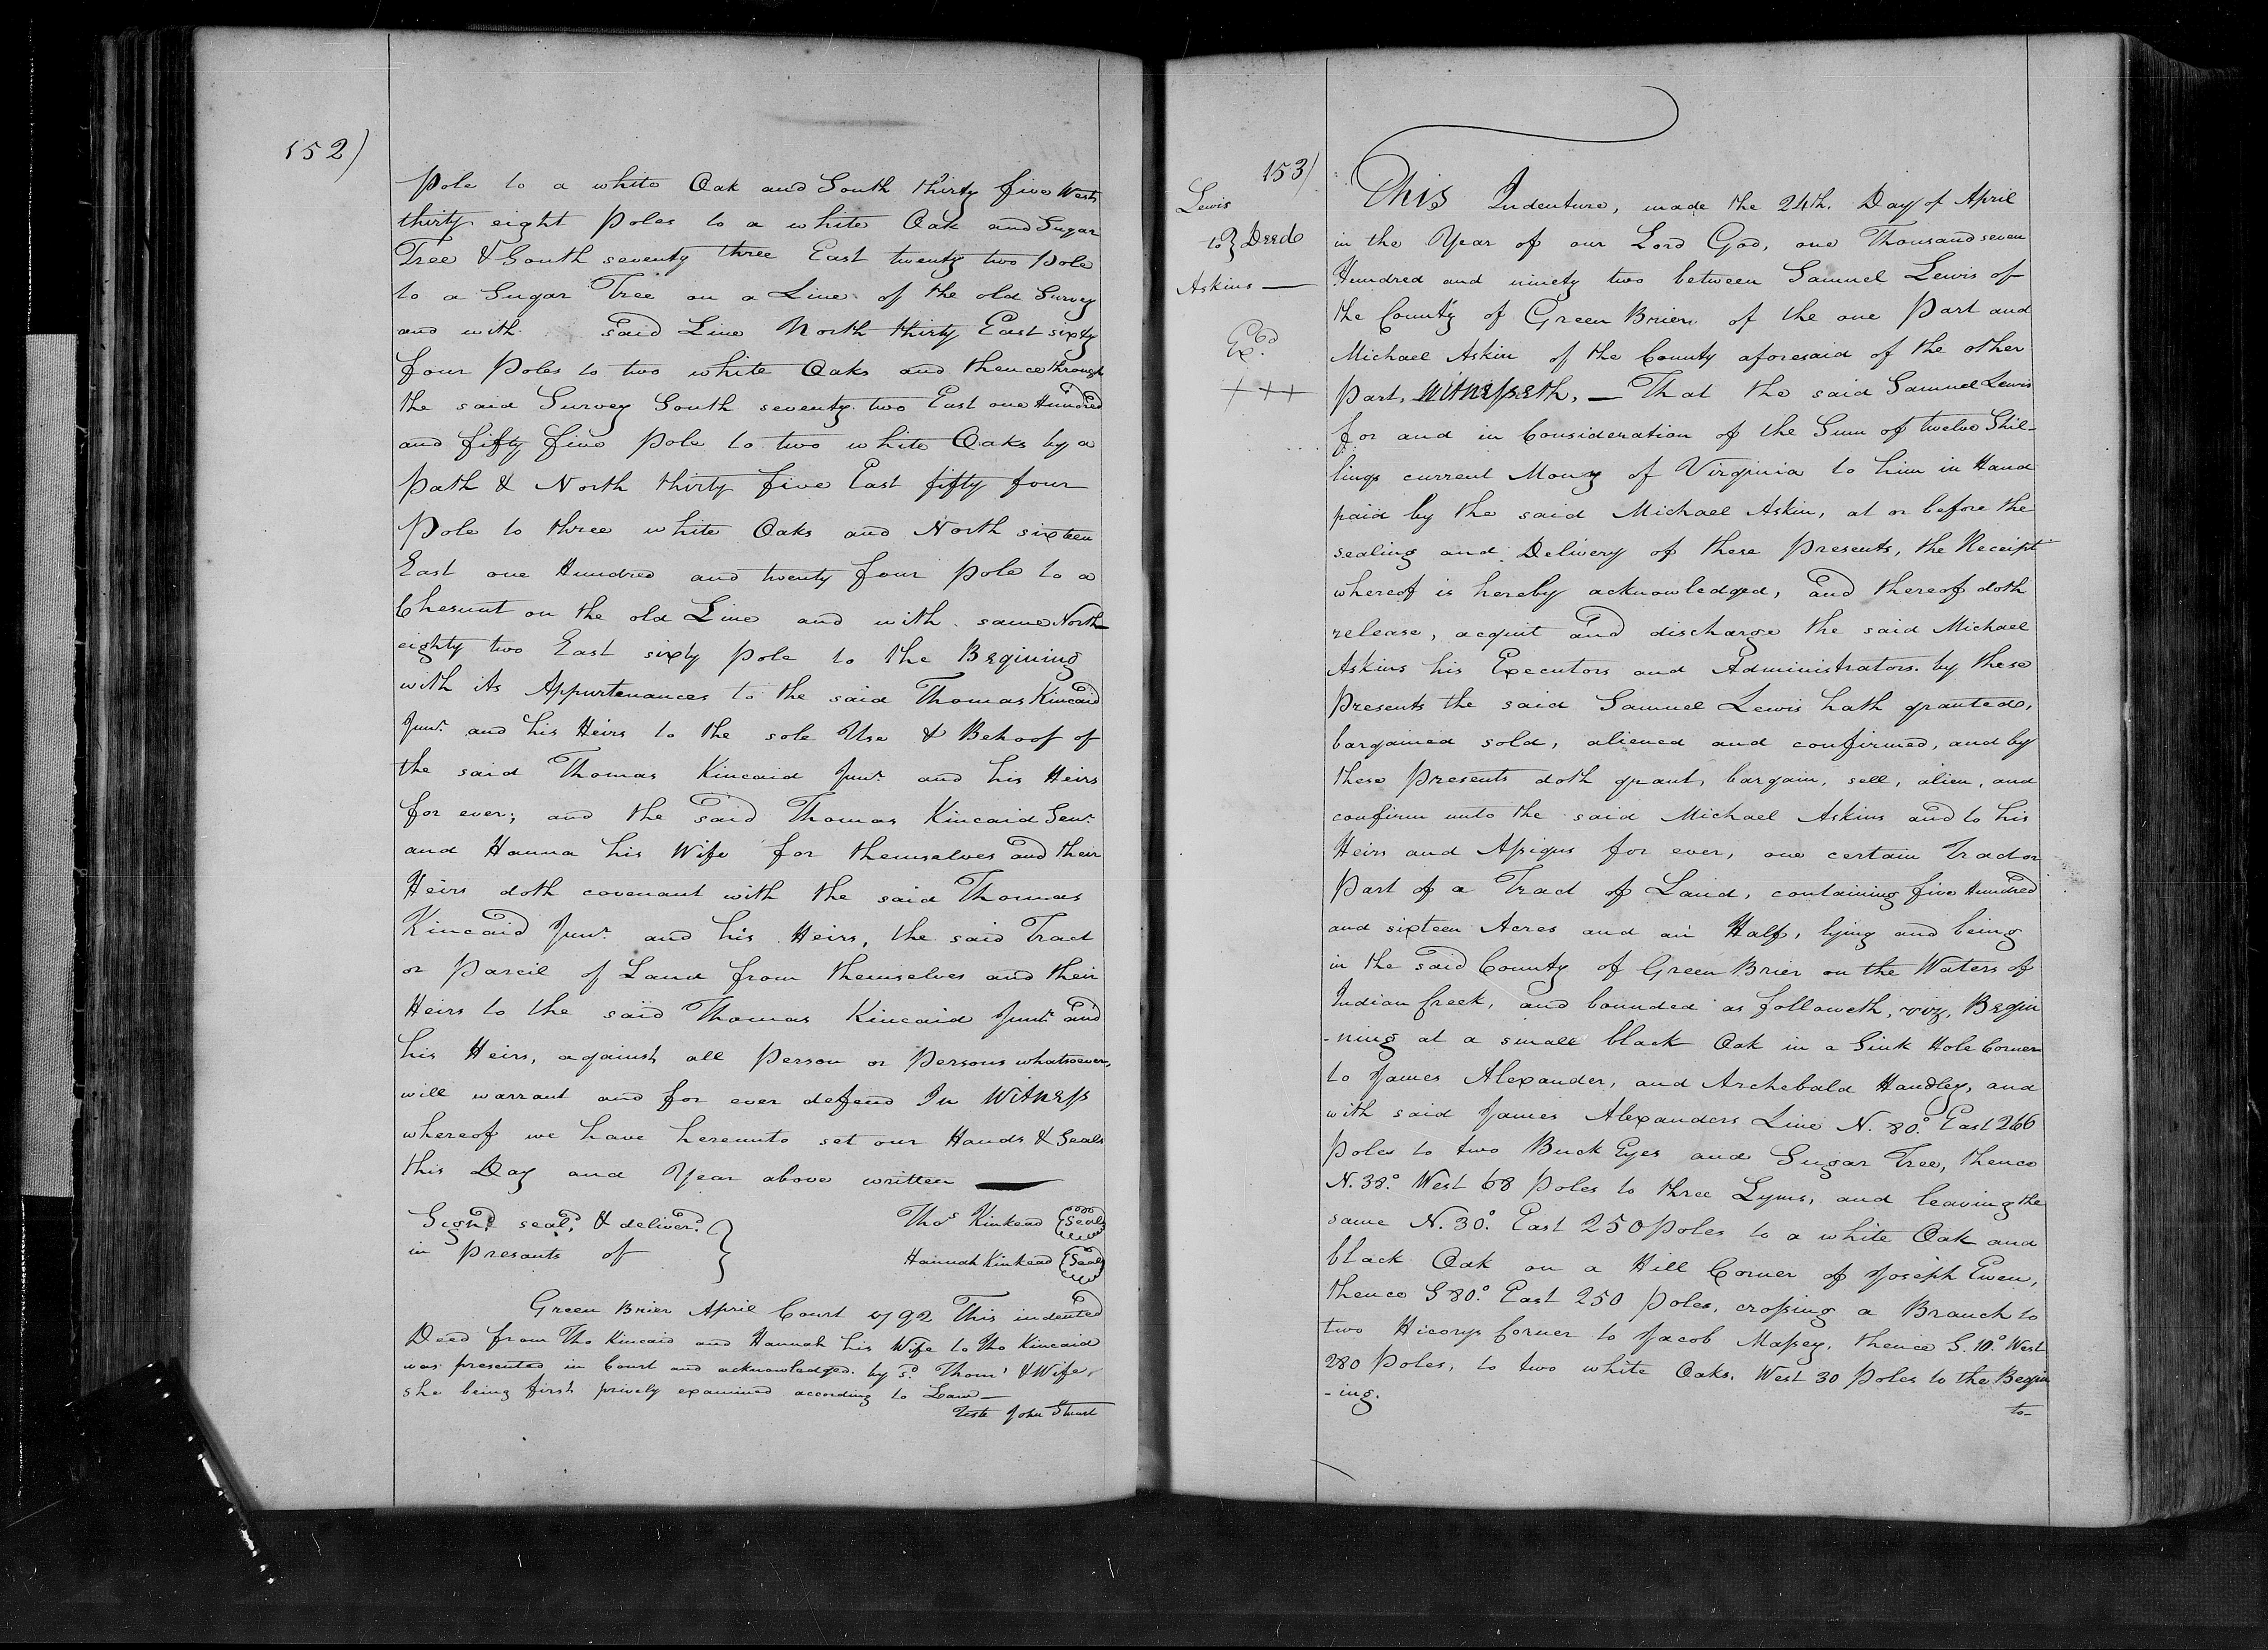 152)
Pole to a white Oak and South thirty five West
thirty eight Poles to a white Oak and Sugar
Tree & South seventy three East twenty two Pole
to a Sugar Tree on a Line of the old Survey
and with said Line North thirty East sixty
four Poles to two white Oaks and thence through
the said Survey South seventy two East one Hundred
and fifty five Pole to two white Oaks by a
Path & North thirty five East fifty four
Pole to three white Oaks and North sixteen
East one Hundred and twenty four Pole to a
Chesnut on the old Line and with same North
eighty two East sixty Pole to the Begining
with its Appurtenances to the said Thomas Kincaid
Junr. and his Heirs to the sole Use & Behoof of
the said Thomas Kincaid Junr. and his Heirs
for ever; and the said Thomas Kincaid Senr.
and Hanna his Wife for themselves and their
Heirs doth covenant with the said Thomas
Kincaid Junr. and his Heirs, the said Tract
or Parcil of Land from themselves and their
Heirs to the said Thomas Kincaid Junr. and
his Heirs, against all Person or Persons whatsoever,
will warrant and for ever defend In Witness
whereof we have hereunto set our Hands & Seals
this Day and Year above written —
Signd. seald. & deliverd.
in Presants of
Thos Kinkead (Seal)
Hannah Kinkead (Seal)
Green Brier April Court 1792 This indented
Deed from Tho Kincaid and Hannah his Wife to Tho Kincaid
was presented in Court and acknowledged by sd. Thoms & Wife,
she being first prively examined according to Law—
Teste John Stuart
153)
Lewis
to } Deed
Askins —
Exd.
+++
This Indenture, made the 24th. Day of April
in the Year of our Lord God, one Thousand seven
Hundred and ninety two between Samuel Lewis of
the County of Green Brier, of the one Part and
Michael Askin of the County aforesaid of the other
Part, Witnesseth, — That the said Samuel Lewis
for and in Consideration of the Sum of twelve Shil-
lings current Mony of Virginia to him in Hand
paid by the said Michael Askin, at or before the
sealing and Delivery of these Presents, the Receipt
whereof is hereby acknowledged, and thereof doth
release, acquit and discharge the said Michael
Askins his Executors and Administrators by these
Presents the said Samuel Lewis hath granted,
bargained sold, aliened and confirmed, and by
these Presents doth grant, bargain, sell, alien, and
confirm unto the said Michael Askins and to his
Heirs and Assigns for ever, one certain Tract or
Part of a Tract of Land, containing five Hundred
and sixteen Acres and an Half, lying and being
in the said County of Green Brier on the Waters of
Indian Creek, and bounded as followeth, viz, Begin
-ning at a small black Oak in a Sink Hole Corner
to James Alexander, and Archebald Handley, and
with said James Alexanders Line N. 80.° East 266
Poles to two Buck Eyes and Sugar Tree, thence
N. 38.° West 68 Poles to three Lyms, and leaving the
same N. 30.° East 250 Poles to a white Oak and
black Oak on a Hill Corner of Joseph Ewen,
thence S 80.° East 250 Poles, crossing a Branch to
two Hicorys Corner to Jacob Massey, thence S. 10.° West
280 Poles, to two white Oaks, West 30 Poles to the Begin
-ing.
to-